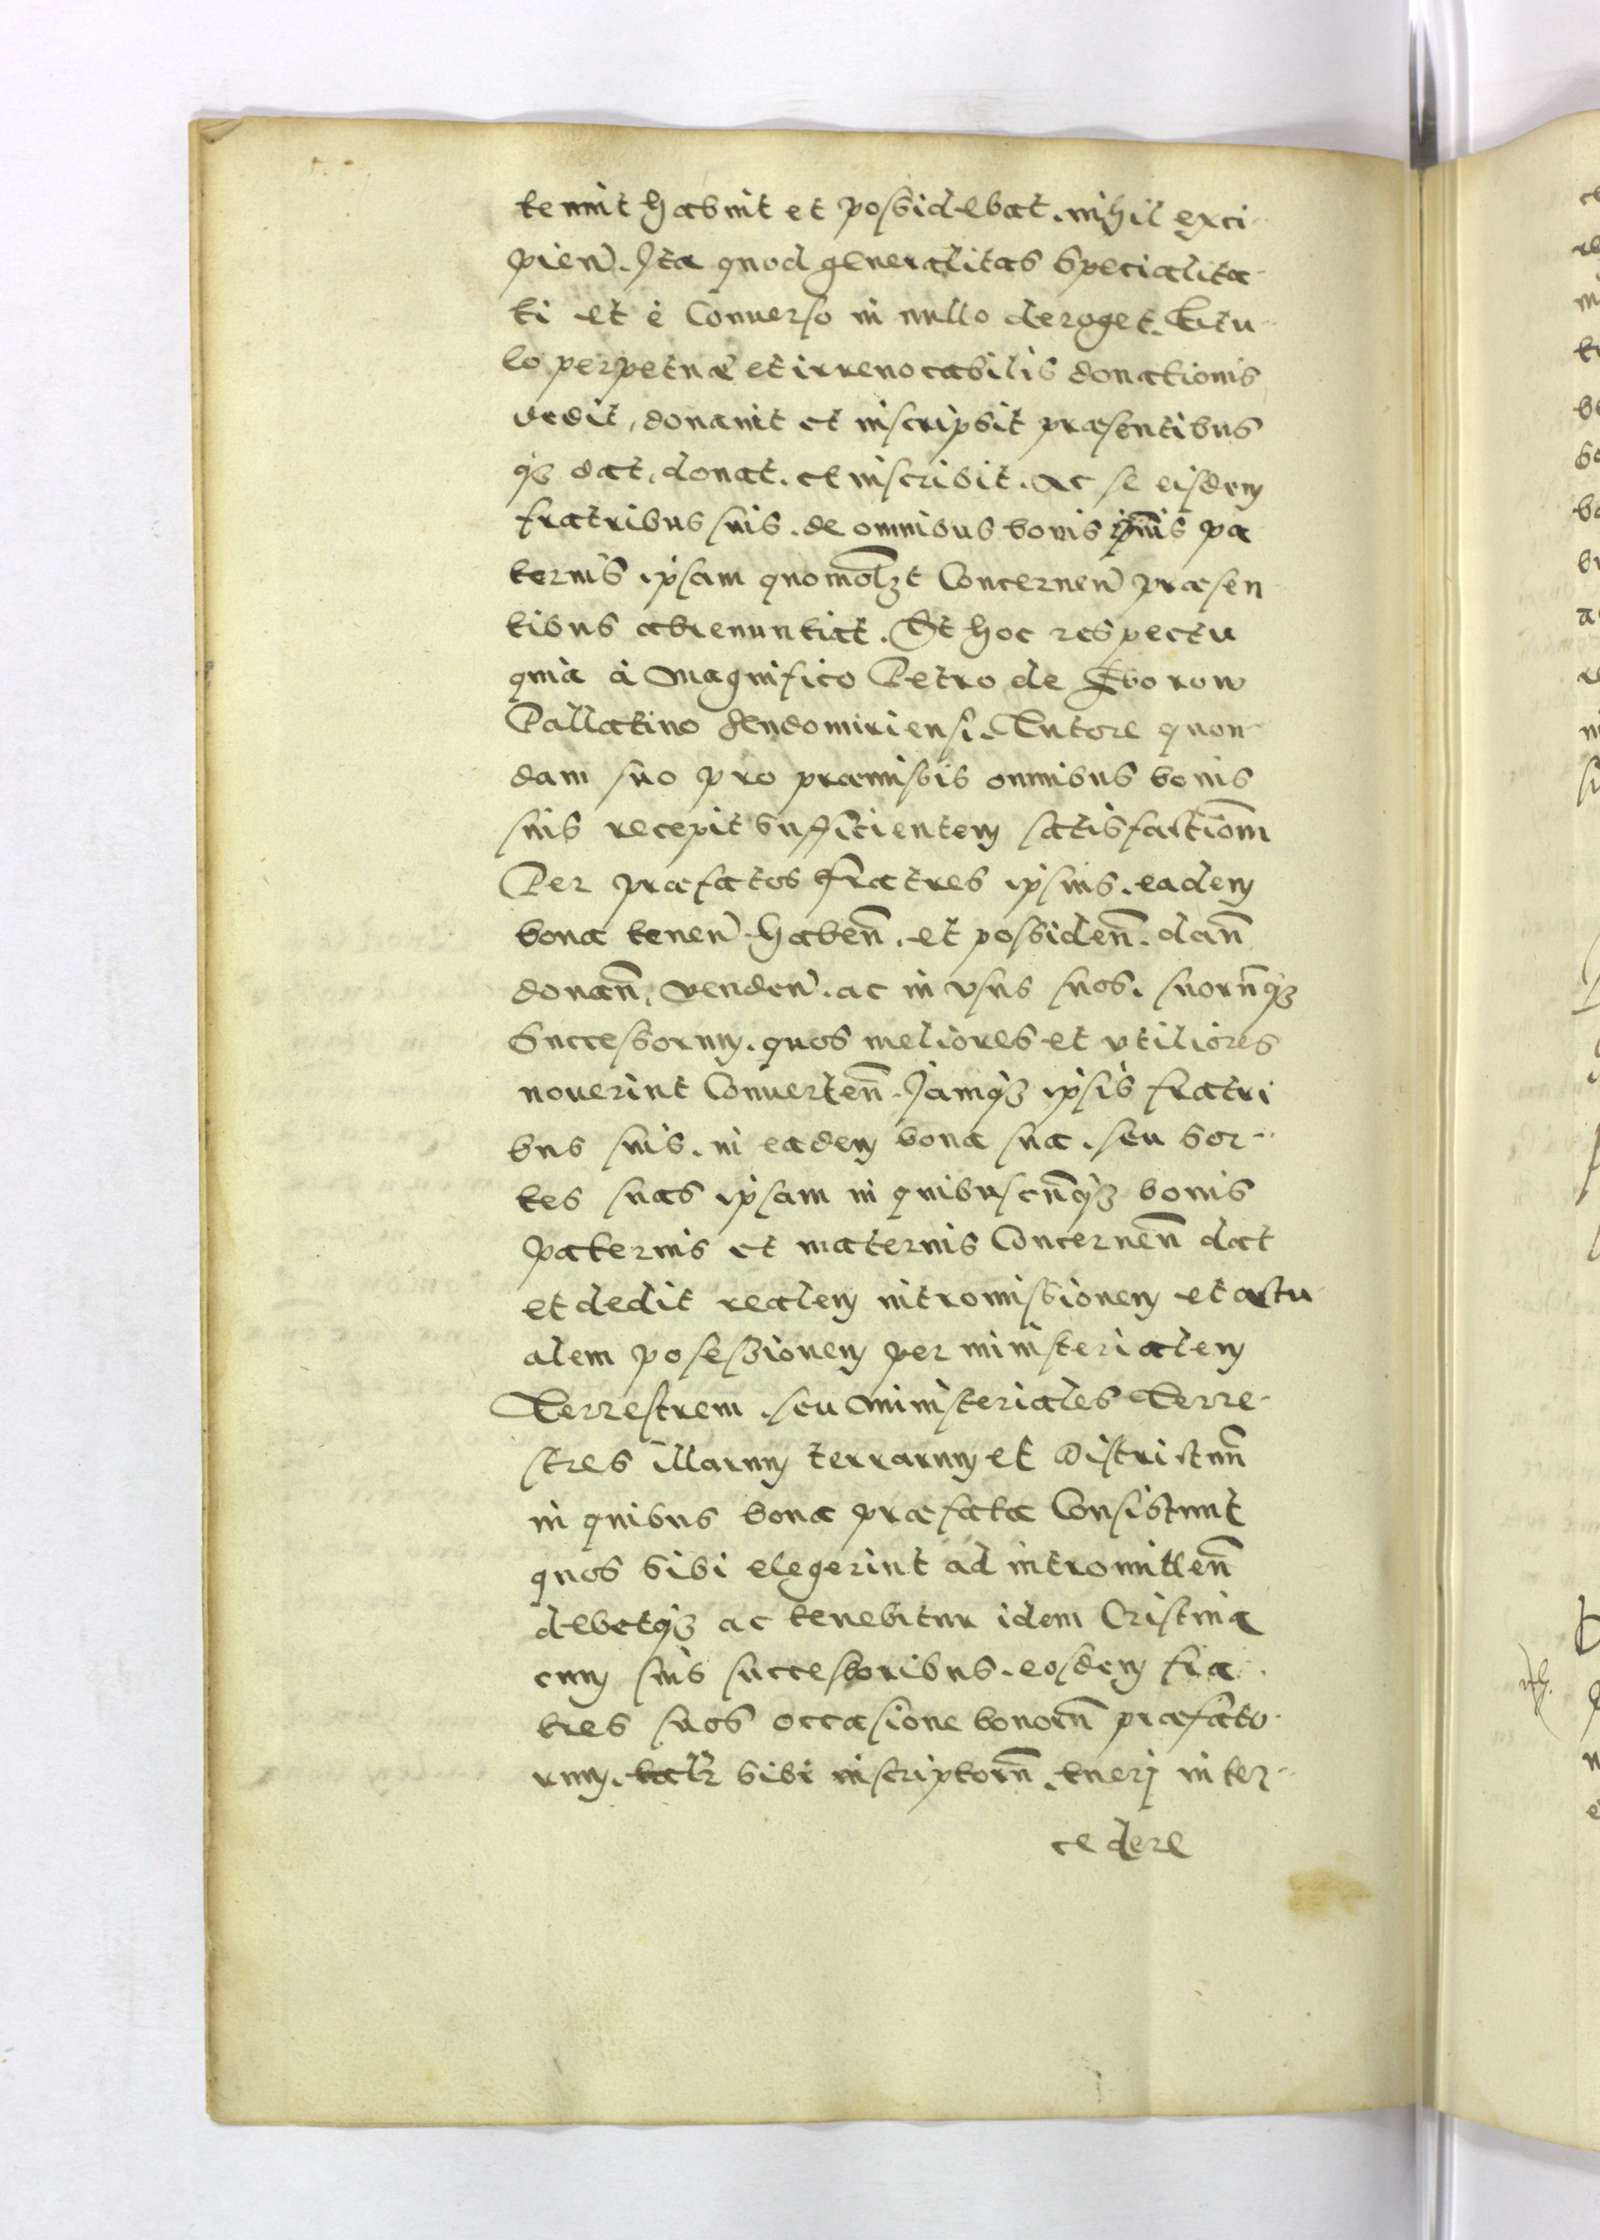 tenuit habuit et possidebat. nihil exci-
pien. Ita quod generalitas Specialita-
ti et è Conuerso in nullo deroget. Titu-
lo perpetuæ et irreuocabilis donationis
dedit, donauit et inscripsit præsentibus
q3 dat, donat. et inscribit. Ac se eisdem
fratribus suis. de omnibus bonis pa
ternis ipsam quomolzt Concernen præsen
tibus abrenuntiat. Et hoc respectu
quia à Magnifico Petro de Sborow
Pallatino Sendomiriensi. Tutore quon-
dam suo pro præmissis omnibus bonis
suis recepit Sufficientem satisfactiom
Per præfatos fratres ipsius. eadem
bona tenen haben. et possiden. dan
donan, venden. ac in vsus suos. suorūq3
Successorum. quos meliores et vtiliores
nouerint Conuerten. Iamq3 ipsis fratri
bus suis. in eadem bona sua. seu sor-
tes suas ipsam in quibuscūq3 bonis
paternis et maternis Concernen dat
et dedit realem intromissionem et actu
alem posessionem per ministerialem
Terrestrem. seu Ministeriales Terre-
stres illarum terrarum et Districtuū
in quibus bona præfata Consistunt
quos sibi elegerint ad intromitten
debetq3 ac tenebitur idem Cristina
cum suis successoribus. eosdem fra-
tres suos occasione bonorū præfato-
rum. sibi inscriptorū. tuerj inter-
cedere